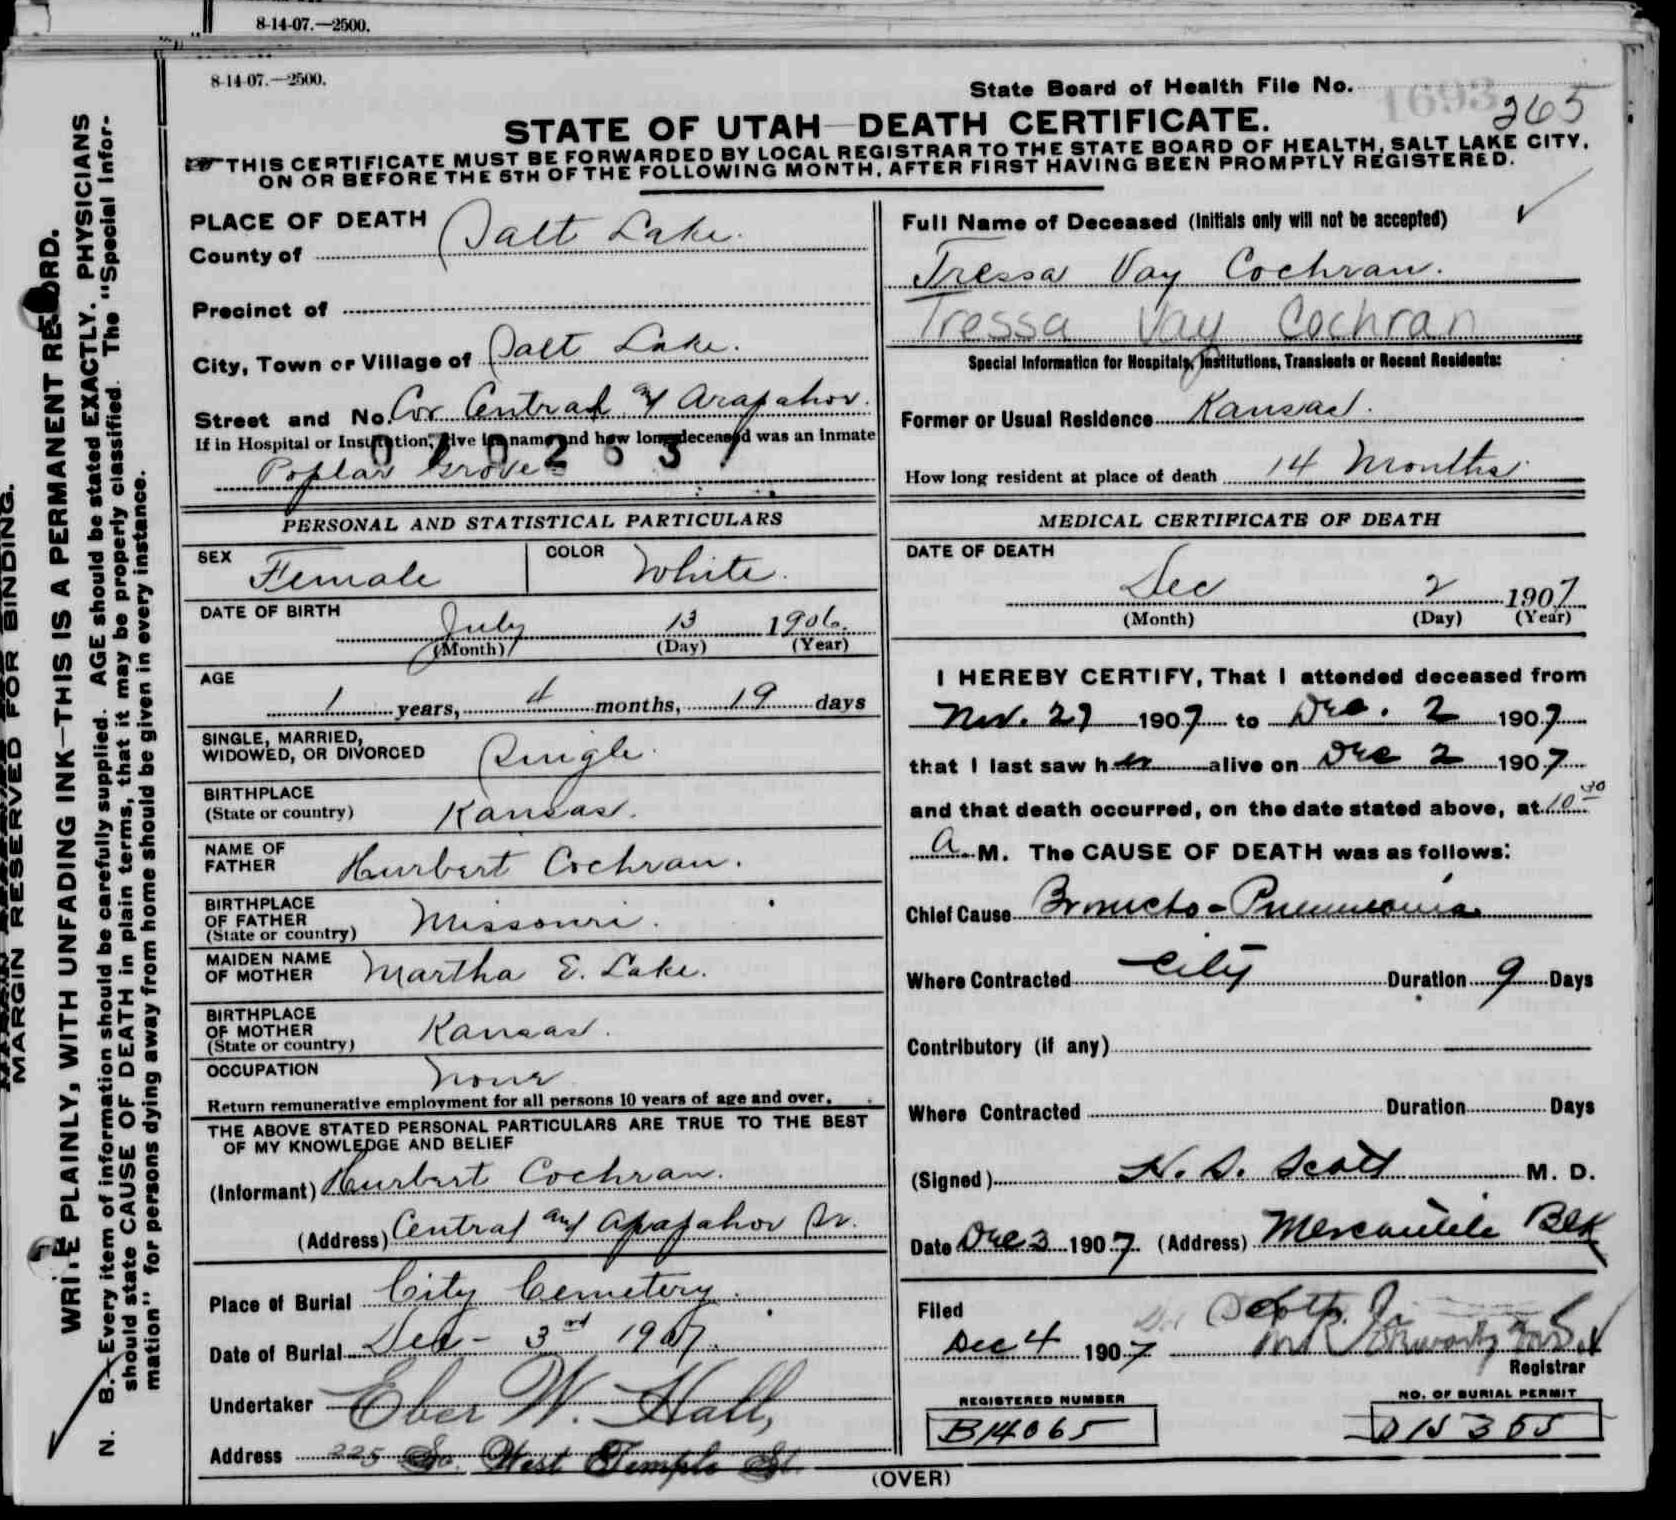 8-14-07.—2500.
8-14-07.—2500.
State Board of Health File No. 1693 265
STATE OF UTAH—DEATH CERTIFICATE.
THIS CERTIFICATE MUST BE FORWARDED BY LOCAL REGISTRAR TO THE STATE BOARD OF HEALTH, SALT LAKE CITY,
ON OR BEFORE THE 5TH OF THE FOLLOWING MONTH, AFTER FIRST HAVING BEEN PROMPTLY REGISTERED.
MARGIN RESERVED FOR BINDING.
WRITE PLAINLY, WITH UNFADING INK—THIS IS A PERMANENT RECORD.
N. B.—Every item of information should be carefully supplied. AGE should be stated EXACTLY. PHYSICIANS
should state CAUSE OF DEATH in plain terms, that it may be properly classified. The "Special Infor-
mation" for persons dying away from home should be given in every instance.
PLACE OF DEATH
County of Salt Lake.
Precinct of
City, Town or Village of Salt Lake.
Street and No. Cor Central and Arapahov.
If in Hospital or Institution, give its name and how long deceased was an inmate
Poplar Grove
PERSONAL AND STATISTICAL PARTICULARS
SEX Female COLOR White.
DATE OF BIRTH
July 13 1906.
(Month) (Day) (Year)
AGE
1 years, 4 months, 19 days
SINGLE, MARRIED,
WIDOWED, OR DIVORCED Single.
BIRTHPLACE
(State or country) Kansas.
NAME OF
FATHER Hurbert Cochran.
BIRTHPLACE
OF FATHER
(State or country) Missouri.
MAIDEN NAME
OF MOTHER Martha E. Lake.
BIRTHPLACE
OF MOTHER
(State or country) Kansas.
OCCUPATION None
Return remunerative employment for all persons 10 years of age and over.
THE ABOVE STATED PERSONAL PARTICULARS ARE TRUE TO THE BEST
OF MY KNOWLEDGE AND BELIEF
(Informant) Hurbert Cochran.
(Address) Central and Apapahov
Place of Burial City Cemetery.
Date of Burial Dec - 3rd 1907.
Undertaker Eber W. Hall,
Address 225 So. West Temple St.
Full Name of Deceased (Initials only will not be accepted)
Tressa Vay Cochran.
Tressa Vay Cochran
Special Information for Hospitals, Institutions, Transients or Recent Residents:
Former or Usual Residence Kansas.
How long resident at place of death 14 Months.
MEDICAL CERTIFICATE OF DEATH
DATE OF DEATH
Dec 2 1907
(Month) (Day) (Year)
I HEREBY CERTIFY, That I attended deceased from
Nov. 27 1907 to Dec. 2 1907
that I last saw her alive on Dec 2 1907
and that death occurred, on the date stated above, at 10 30
A. M. The CAUSE OF DEATH was as follows:
Chief Cause Broncho-Pneumonia
Where Contracted City Duration 9 Days
Contributory (if any)
Where Contracted Duration Days
(Signed) H. S. Scott M. D.
Date Dec 3 1907 (Address) Mercantile Blk
Filed
Dec 4 1907
Registrar
REGISTERED NUMBER
B14065
NO. OF BURIAL PERMIT
D15365
(OVER)